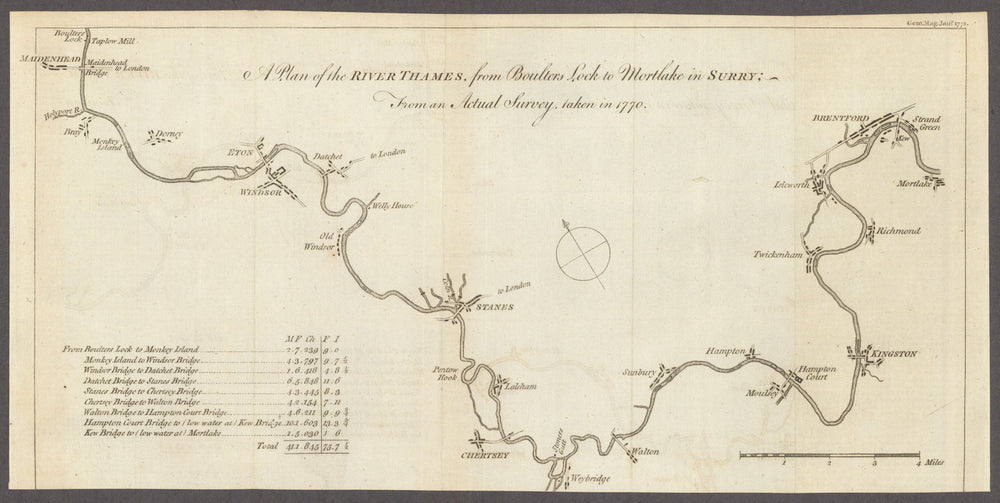 Gent. Mag. Jan.ʸ 1772.
A Plan of the RIVER THAMES, from Boulters Lock to Mortlake in SURRY;
From an Actual Survey, taken in 1770.
Boulters
Lock
Taplow Mill
MAIDENHEAD
Maidenhead
Bridge
to London
Holyport R.
Bray
Monkey
Island
Dorney
ETON
WINDSOR
Datchet
to London
Welle House
Old
Windsor
to London
STANES
Pentow
Hook
Laleham
CHERTSEY
Weybridge
Walton
Sunbury
Hampton
Hampton
Court
Moulsey
KINGSTON
Twickenham
Richmond
Isleworth
BRENTFORD
Kew
Strand
Green
Mortlake
M F Ch F I
From Boulters Lock to Monkey Island 2.7.239 9.0
Monkey Island to Windsor Bridge 4.3.797 9.7 ½
Windsor Bridge to Datchet Bridge 1.6.418 4.8 ½
Datchet Bridge to Stanes Bridge 6.5.848 11.6
Stanes Bridge to Chertsey Bridge 4.3.445 8.3
Chertsey Bridge to Walton Bridge 4.2.154 7.11
Walton Bridge to Hampton Court Bridge 4.6.211 9.9 ¾
Hampton Court Bridge to (low water at) Kew Bridge 10.1.603 13.3 ¾
Kew Bridge to (low water at) Mortlake 1.5.030 1 6
Total 41.1.845 75.7 ½
1 2 3 4 Miles